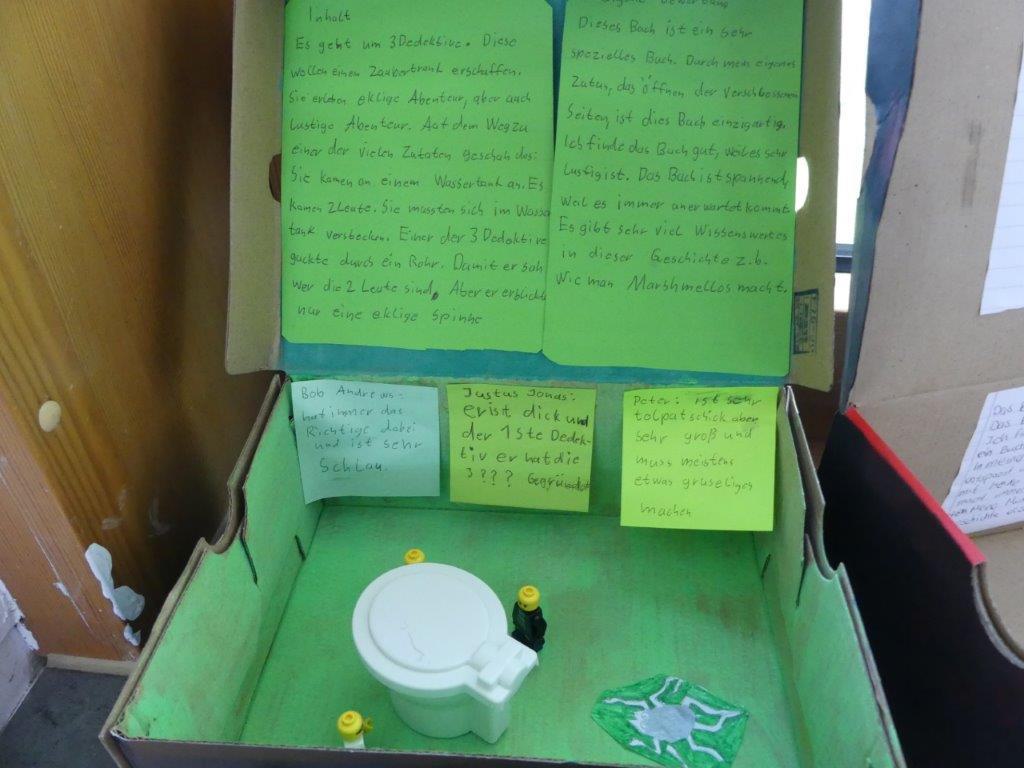 Inhalt
Es geht um 3 Dedektive. Diese
wollen einen Zaubertrank erschaffen.
Sie erleben eklige Abenteur, aber auch
lustige Abenteur. Auf dem Weg zu
einer der vielen Zutaten geschah das:
Sie kamen an einem Wassertank an. Es
kamen 2 Leute. Sie mussten sich im Wasser
tank verstecken. Einer der 3 Dedektive
guckte durch ein Rohr. Damit er sah
wer die 2 Leute sind. Aber er erblickte
nur eine eklige Spinne
Eigene Bewertung
Dieses Buch ist ein sehr
spezielles Buch. Durch mein eigenes
Zutun, das öffnen der verschlossenen
Seiten, ist dies Buch einzigartig.
Ich finde das Buch gut, weil es sehr
lustig ist. Das Buch ist spannend,
weil es immer unerwartet kommt
Es gibt sehr viel Wissenswertes
in dieser Geschichte z.b.
Wie man Marshmellos macht.
Bob Andrews:
hat immer das
Richtige dabei
und ist sehr
Schlau.
Justus Jonas:
er ist dick und
der 1ste Dedek-
tiv er hat die
3??? Gegründet
Peter: ist sehr
tolpatschick aber
sehr groß und
muss meistens
etwas gruseliges
machen